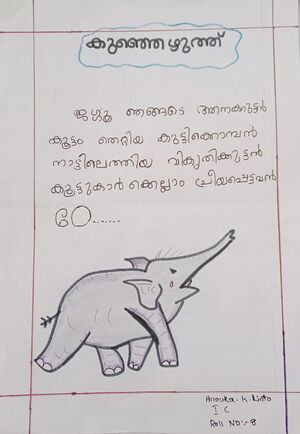 കുഞ്ഞെഴുത്ത്
ജഗ്ഗു ഞങ്ങടെ ആനക്കുട്ടൻ
കൂട്ടം തെറ്റിയ കുട്ടിക്കൊമ്പൻ
നാട്ടിലെത്തിയ വികൃതിക്കുട്ടൻ
കൂട്ടുകാർ ക്കെല്ലാം പ്രീയപ്പെട്ടവൻ
Anouka. K. Linto
I C
Roll NO:- 8